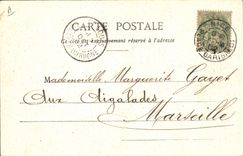 CARTE POSTALE
Ce côté est exclusivement réservé à l'adresse
Mademoiselle Marguerite Gayet
Aux Aigalades
Marseille